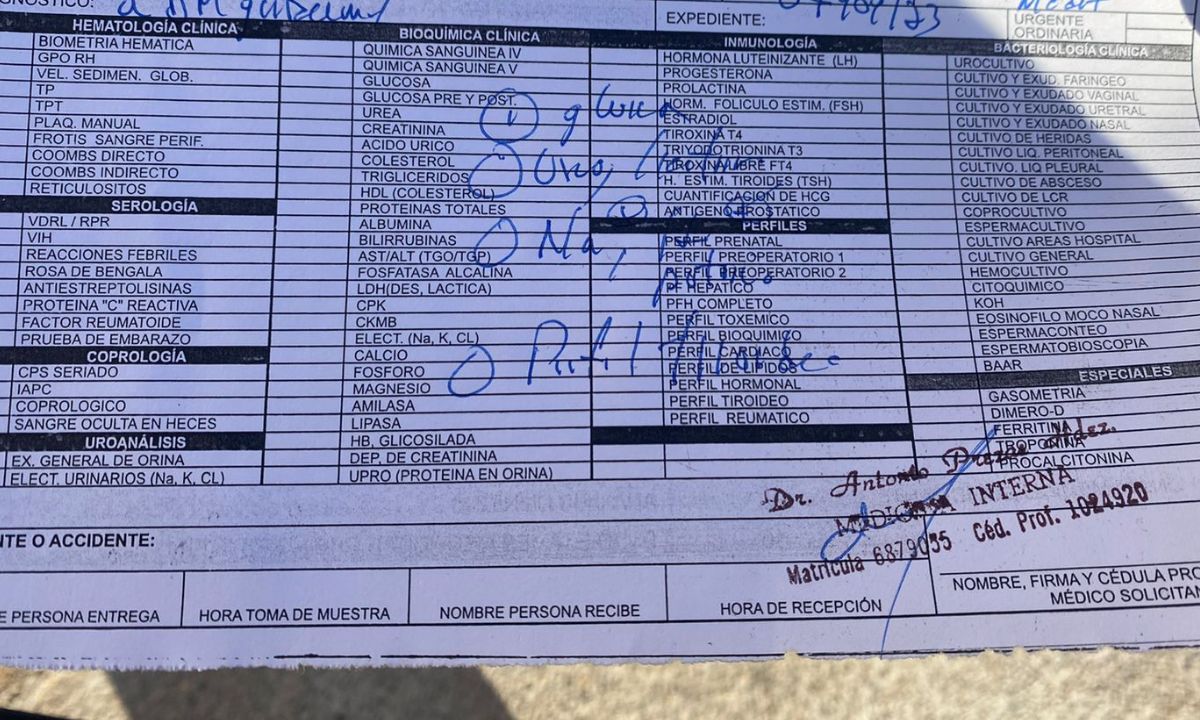 EXPEDIENTE:
URGENTE
ORDINARIA
HEMATOLOGÍA CLÍNICA
BIOMETRIA HEMATICA
GPO RH
VEL. SEDIMEN. GLOB.
TP
TPT
PLAQ. MANUAL
FROTIS SANGRE PERIF.
COOMBS DIRECTO
COOMBS INDIRECTO
RETICULOSITOS
SEROLOGÍA
VDRL / RPR
VIH
REACCIONES FEBRILES
ROSA DE BENGALA
ANTIESTREPTOLISINAS
PROTEINA "C" REACTIVA
FACTOR REUMATOIDE
PRUEBA DE EMBARAZO
COPROLOGÍA
CPS SERIADO
IAPC
COPROLOGICO
SANGRE OCULTA EN HECES
UROANÁLISIS
EX. GENERAL DE ORINA
ELECT. URINARIOS (Na, K, CL)
BIOQUÍMICA CLÍNICA
QUIMICA SANGUINEA IV
QUIMICA SANGUINEA V
GLUCOSA
GLUCOSA PRE Y POST.
UREA
CREATININA
ACIDO URICO
COLESTEROL
TRIGLICERIDOS
HDL (COLESTEROL)
PROTEINAS TOTALES
ALBUMINA
BILIRRUBINAS
AST/ALT (TGO/TGP)
FOSFATASA ALCALINA
LDH(DES, LACTICA)
CPK
CKMB
ELECT. (Na, K, CL)
CALCIO
FOSFORO
MAGNESIO
AMILASA
LIPASA
HB, GLICOSILADA
DEP, DE CREATININA
UPRO (PROTEINA EN ORINA)
INMUNOLOGÍA
HORMONA LUTEINIZANTE (LH)
PROGESTERONA
PROLACTINA
HORM. FOLICULO ESTIM. (FSH)
ESTRADIOL
TIROXINA T4
TRIYODOTRIONINA T3
TIROXINA LIBRE FT4
H. ESTIM. TIROIDES (TSH)
CUANTIFICACION DE HCG
ANTIGENO PROSTATICO
PERFILES
PERFIL PRENATAL
PERFIL PREOPERATORIO 1
PERFIL PREOPERATORIO 2
PF HEPATICO
PFH COMPLETO
PERFIL TOXEMICO
PERFIL BIOQUIMICO
PERFIL CARDIACO
PERFIL DE LIPIDOS
PERFIL HORMONAL
PERFIL TIROIDEO
PERFIL REUMATICO
BACTERIOLOGÍA CLÍNICA
UROCULTIVO
CULTIVO Y EXUD. FARINGEO
CULTIVO Y EXUDADO VAGINAL
CULTIVO Y EXUDADO URETRAL
CULTIVO Y EXUDADO NASAL
CULTIVO DE HERIDAS
CULTIVO LIQ. PERITONEAL
CULTIVO. LIQ PLEURAL
CULTIVO DE ABSCESO
CULTIVO DE LCR
COPROCULTIVO
ESPERMACULTIVO
CULTIVO AREAS HOSPITAL
CULTIVO GENERAL
HEMOCULTIVO
CITOQUIMICO
KOH
EOSINOFILO MOCO NASAL
ESPERMACONTEO
ESPERMATOBIOSCOPIA
BAAR
ESPECIALES
GASOMETRIA
DIMERO-D
FERRITINA
TROPONINA
PROCALCITONINA
Na,
Perfil
Dr. Antonio
MEDICINA INTERNA
Matrícula 6879035 Céd. Prof. 1024920
NTE O ACCIDENTE:
E PERSONA ENTREGA
HORA TOMA DE MUESTRA
NOMBRE PERSONA RECIBE
HORA DE RECEPCIÓN
NOMBRE, FIRMA Y CÉDULA PRO
MÉDICO SOLICITAN